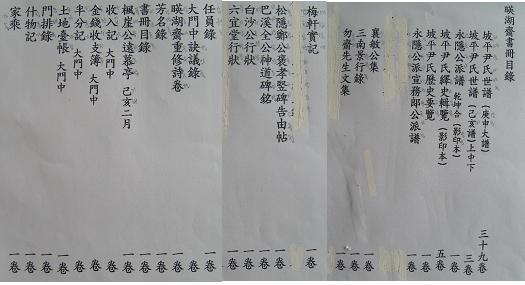 暎湖齋書冊目錄
坡平尹氏世譜 (庚申大譜) 三十九卷
坡平尹氏世譜 (己亥譜)上中下 三卷
永隱公派譜 乾坤合 (影印本) 一卷
坡平尹氏繹史輯覽 (影印本) 五卷
坡平尹氏歷史要覽 一卷
永隱公派宣務郞公派譜 一卷
襄敏公集 一卷
三南景行錄 一卷
勿齋先生文集 一卷
梅軒實記 一卷
松隱鄭公褒孝竪碑告由帖 一卷
巴溪全公神道碑銘 一卷
白沙公行狀 一卷
六宜堂行狀 一卷
任員錄 一卷
大門中訣議錄 一卷
暎湖齋重修詩卷 一卷
芳名錄 一卷
書冊目錄 一卷
楓崖公遠慕亭 己亥二月 一卷
收入記 大門中 一卷
半分記 大門中 一卷
金錢收支簿 大門中 一卷
土地臺帳 大門中 一卷
門排錄 一卷
什物記 一卷
家乘 一卷